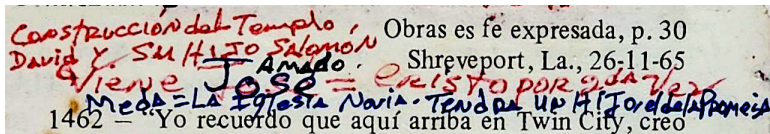 Construcción del Templo,
David Y SU HIJO SALOMÓN
Obras es fe expresada, p. 30
Amado.
Shreveport, La., 26-11-65
Viene José = Cristo POR 2DA Vez
Meda = LA IGlesia Novia. Tendra UN HIJO el de la Promesa
1462 – “Yo recuerdo que aquí arriba en Twin City, creo